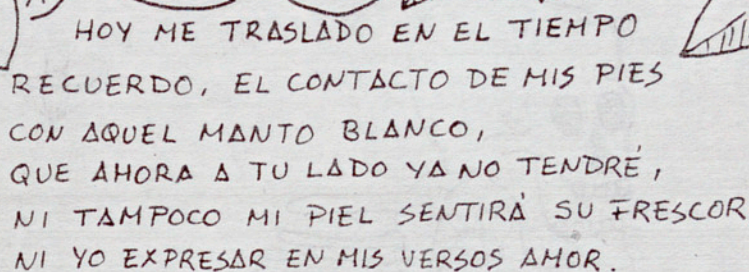 HOY ME TRASLADO EN EL TIEMPO
RECUERDO, EL CONTACTO DE MIS PIES
CON AQUEL MANTO BLANCO,
QUE AHORA A TU LADO YA NO TENDRÉ,
NI TAMPOCO MI PIEL SENTIRÁ SU FRESCOR
NI YO EXPRESAR EN MIS VERSOS AMOR.